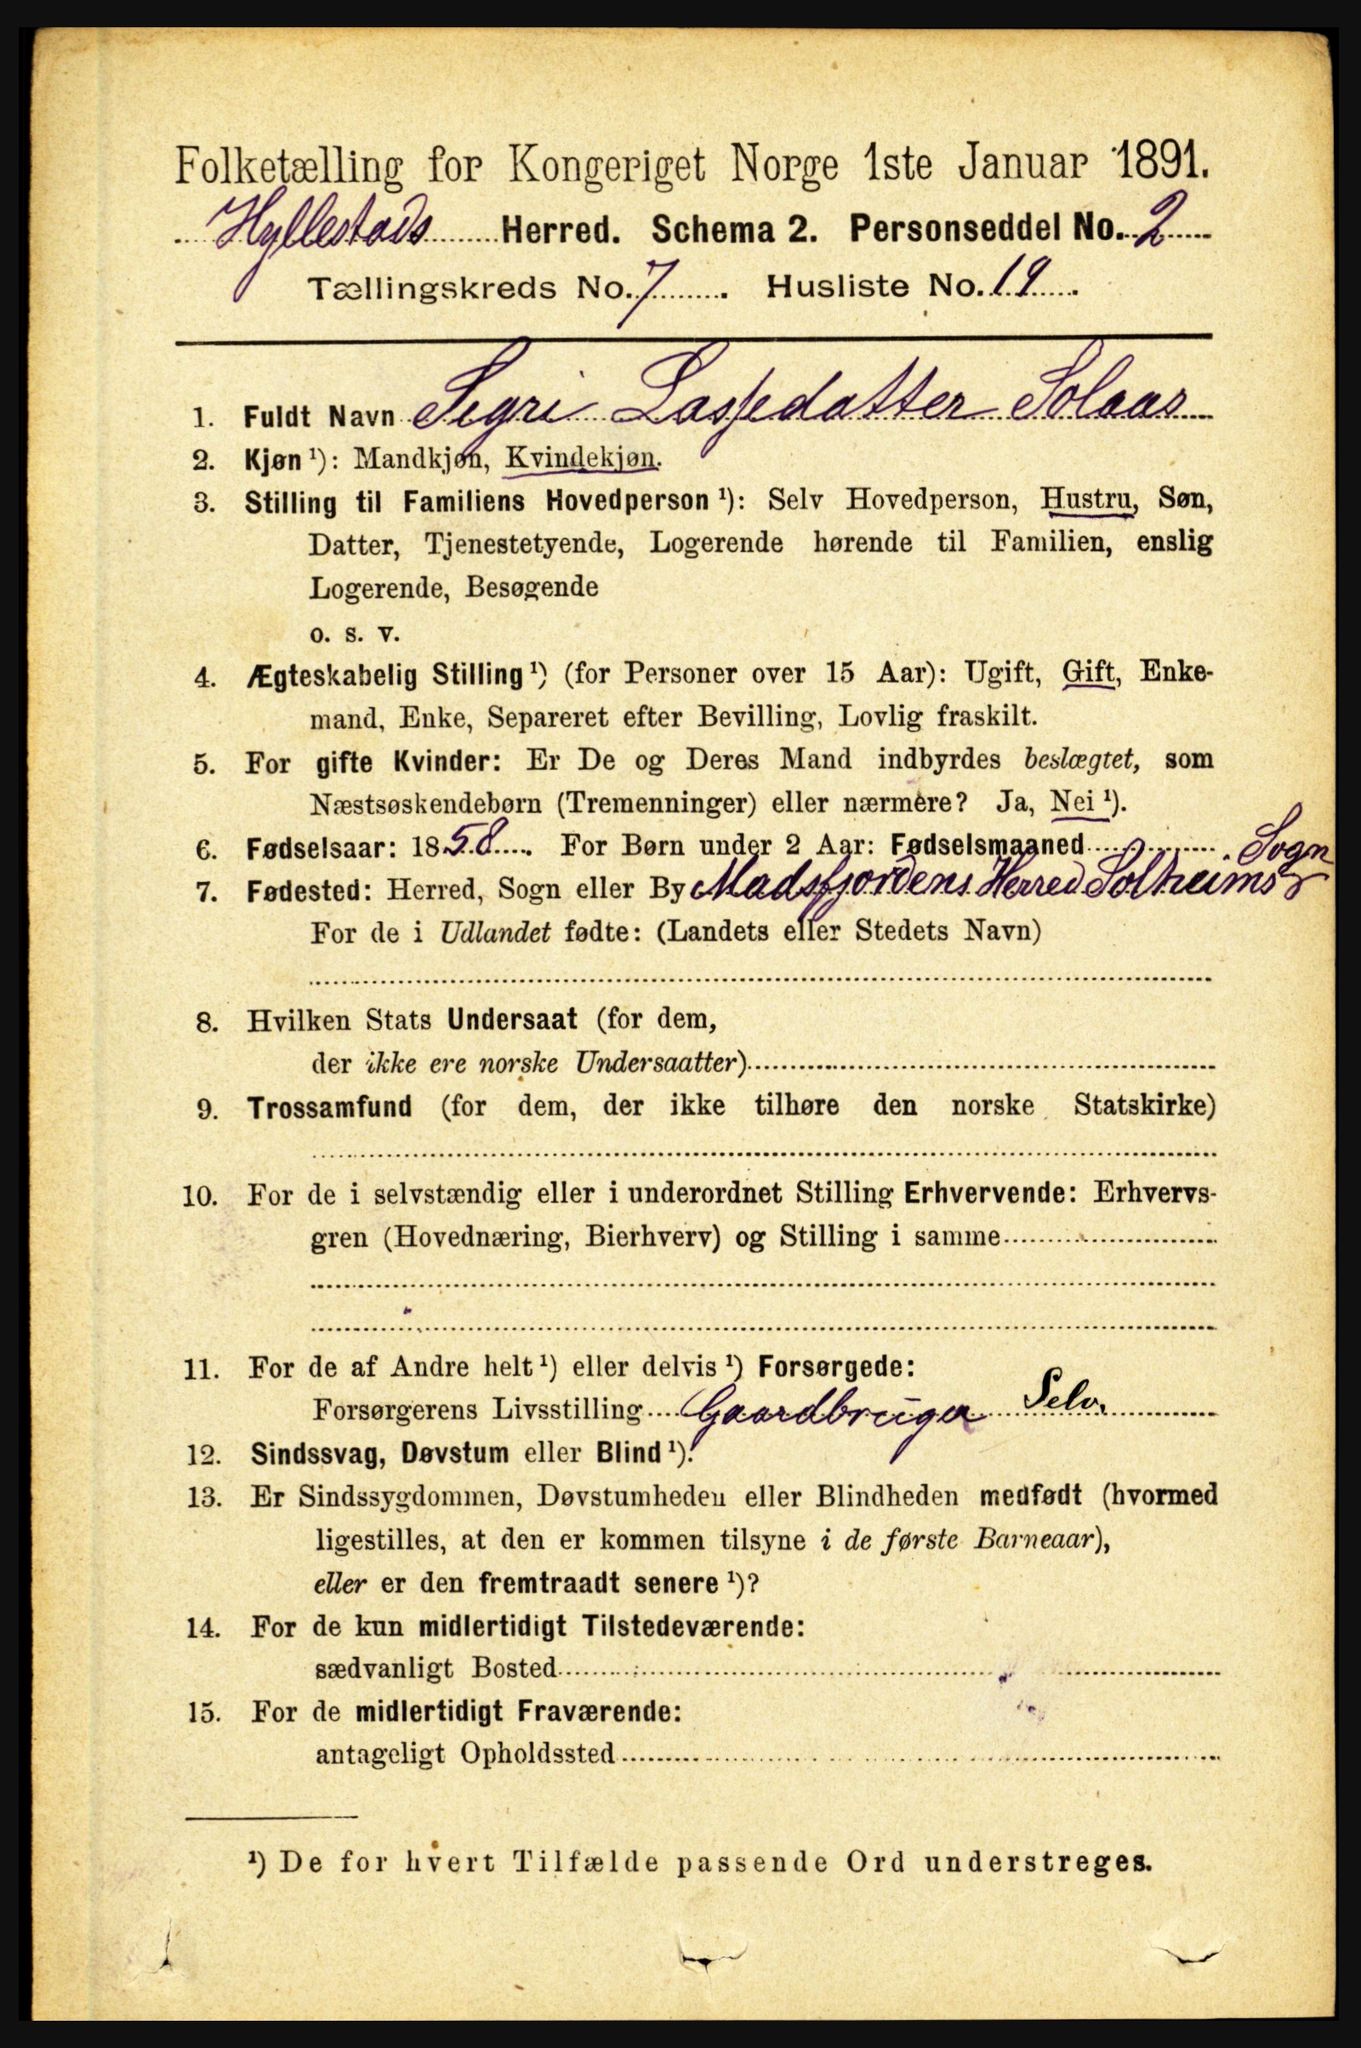 Folketælling for Kongeriget Norge 1ste Januar 1891.
Hyllestads Herred. Schema 2. Personseddel No. 2
Tællingskreds No. 7. Husliste No. 19.
1. Fuldt Navn Sigri Lassedatter Solaas
2. Kjøn ¹): Mandkjøn, Kvindekjøn.
3. Stilling til Familiens Hovedperson ¹): Selv Hovedperson, Hustru, Søn,
Datter, Tjenestetyende, Logerende hørende til Familien, enslig
Logerende, Besøgende
o. s. v.
4. Ægteskabelig Stilling ¹) (for Personer over 15 Aar): Ugift, Gift, Enke-
mand, Enke, Separeret efter Bevilling, Lovlig fraskilt.
5. For gifte Kvinder: Er De og Deres Mand indbyrdes beslægtet, som
Næstsøskendebørn (Tremenninger) eller nærmere? Ja, Nei ¹).
6. Fødselsaar: 1858. For Børn under 2 Aar: Fødselsmaaned
Sogn
7. Fødested: Herred, Sogn eller By Madsfjordens Herred Solheims
For de i Udlandet fødte: (Landets eller Stedets Navn)
8. Hvilken Stats Undersaat (for dem,
der ikke ere norske Undersaatter)
9. Trossamfund (for dem, der ikke tilhøre den norske Statskirke)
10. For de i selvstændig eller i underordnet Stilling Erhvervende: Erhvervs-
gren (Hovednæring, Bierhverv) og Stilling i samme
11. For de af Andre helt ¹) eller delvis ¹) Forsørgede:
Forsørgerens Livsstilling Gaardbruger Selv.
12. Sindssvag, Døvstum eller Blind ¹).
13. Er Sindssygdommen, Døvstumheden eller Blindheden medfødt (hvormed
ligestilles, at den er kommen tilsyne i de første Barneaar),
eller er den fremtraadt senere ¹)?
14. For de kun midlertidigt Tilstedeværende:
sædvanligt Bosted
15. For de midlertidigt Fraværende:
antageligt Opholdssted
¹) De for hvert Tilfælde passende Ord understreges.